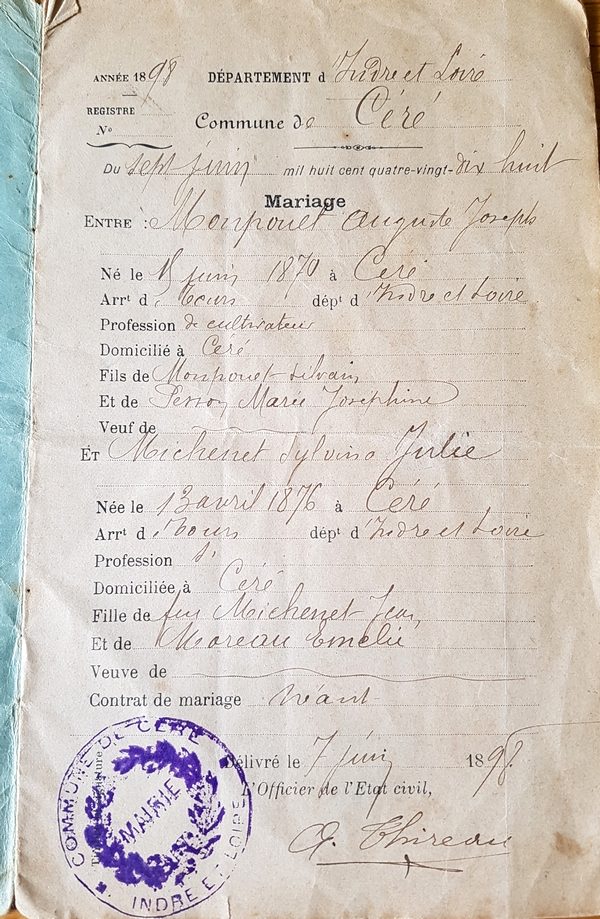 ANNÉE 1898 DÉPARTEMENT d'Indre et Loire
REGISTRE
No
Commune de Céré
Du sept juin mil huit cent quatre-vingt-dix huit
Mariage
ENTRE : Monpouet Auguste Joseph
Né le 18 juin 1870 à Céré
Arrt de Tours dépt d'Indre et Loire
Profession de cultivateur
Domicilié à Céré
Fils de Monpouet Silvain
Et de Marie Joséphine
Veuf de
ET Michenet Sylvina Julie
Née le 13 avril 1876 à Céré
Arrt de Tours dépt d'Indre et Loire
Profession
Domiciliée à Céré
Fille de feu Michenet Jean
Et de Moreau Emélie
Veuve de
Contrat de mariage Néant
Délivré le 7 juin 1898
L'Officier de l'Etat civil,
Thireau
COMMUNE DE CÉRÉ
MAIRIE
INDRE ET LOIRE